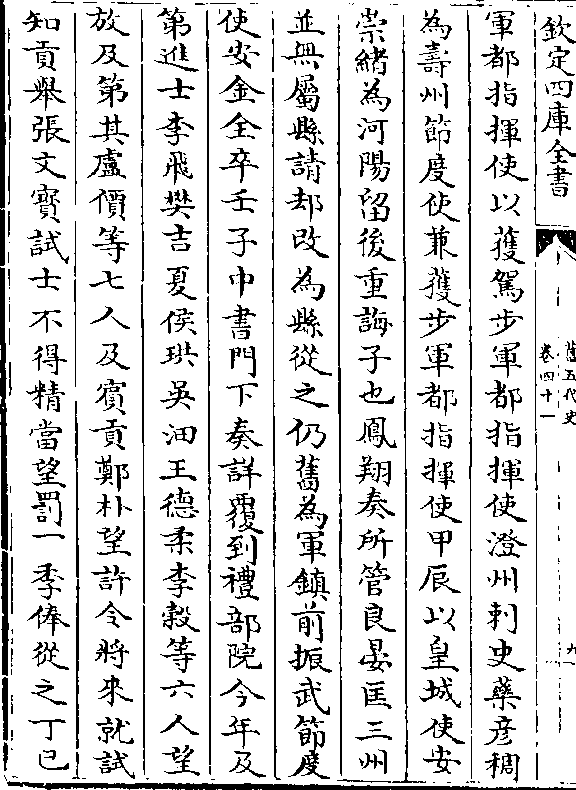 欽定四庫全書
舊五代史
卷四十一
九
軍都指揮使以䕶駕步軍都指揮使澄州刺史藥彦稠
為壽州節度使兼䕶步軍都指揮使甲辰以皇城使安
崇緒為河陽留後重誨子也鳳翔奏所管良晏匡三州
並無屬縣請却改為縣從之仍舊為軍鎮前振武節度
使安金全卒壬子中書門下奏詳覆到禮部院今年及
第進士李飛樊吉夏侯珙吳油王德柔李穀等六人望
放及第其盧價等七人及賓貢鄭朴望許令將來就試
知貢舉張文寳試士不得精當望罰一季俸從之丁已